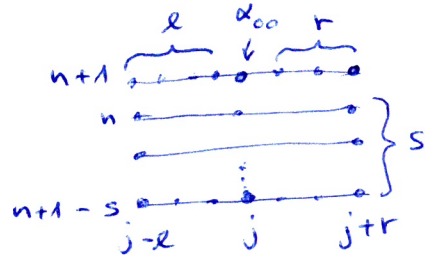 ℓ α₀₀ r
n+1
n
s
n+1-s
j-ℓ j j+r